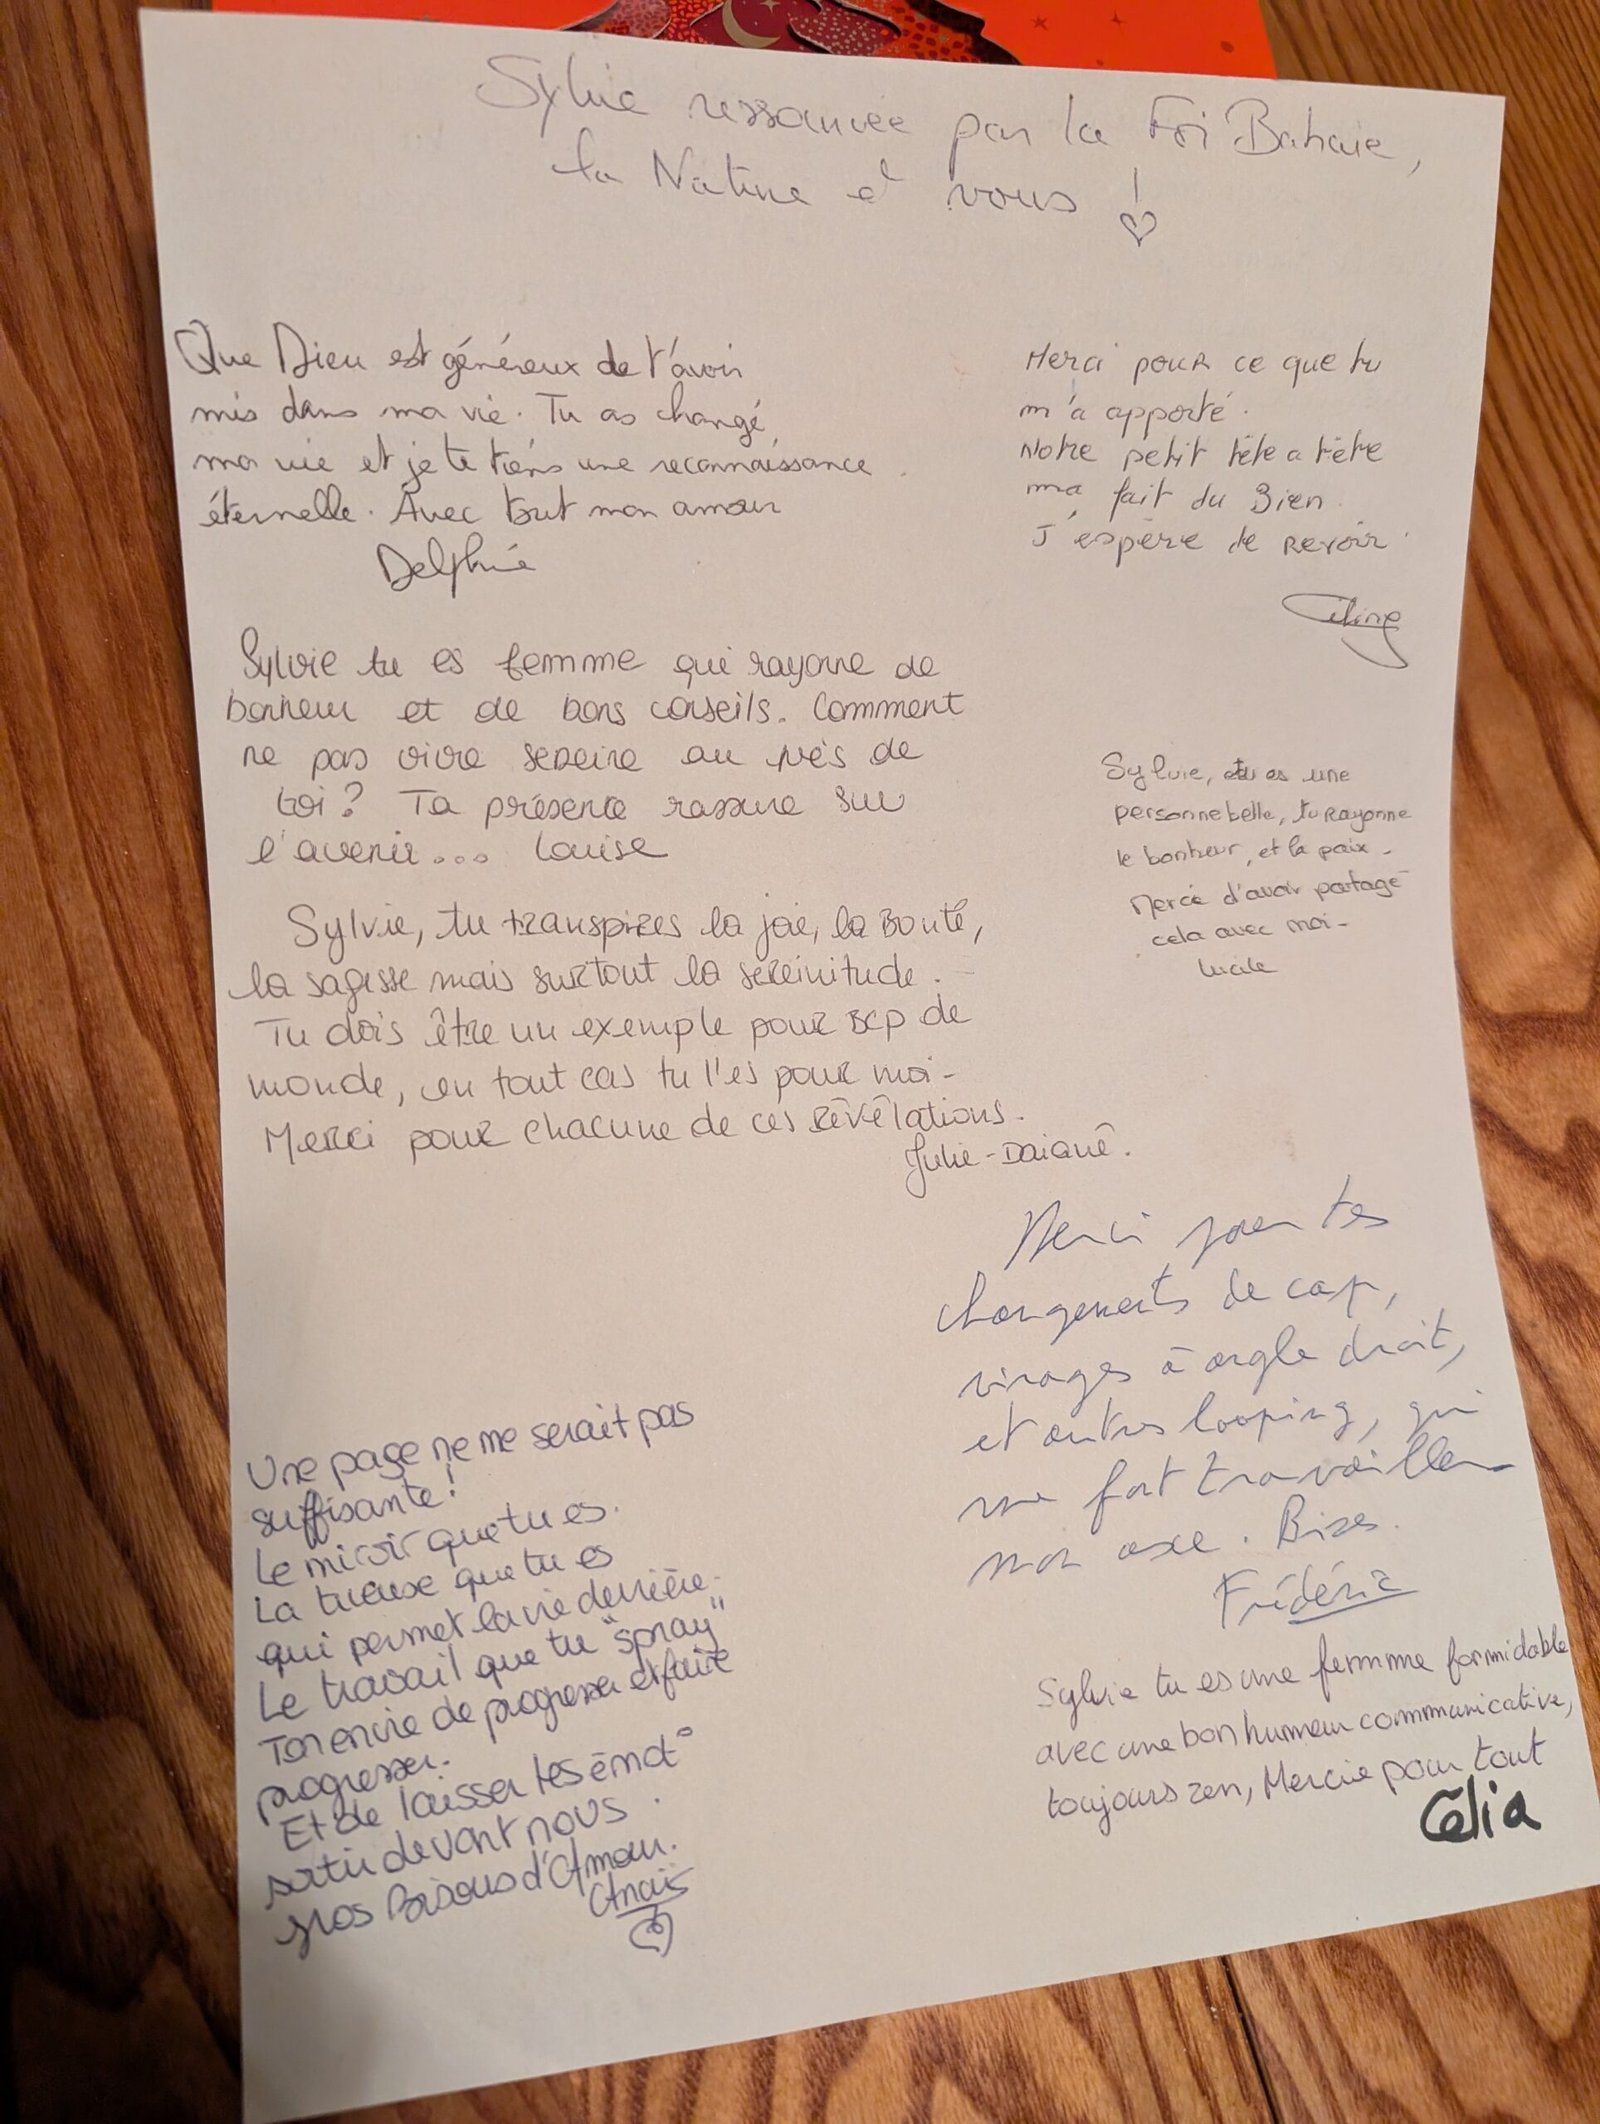 Sylvie ressourcée par la Foi Bahaïe,
la Nature et vous !
Que Dieu est généreux de t'avoir
mis dans ma vie. Tu as changé
ma vie et je te tiens une reconnaissance
éternelle. Avec tout mon amour
Delphine
Merci pour ce que tu
m'a apporté.
Notre petit tête a tête
ma fait du Bien.
J'espère te revoir.
Céline
Sylvie tu es femme qui rayonne de
bonheur et de bons conseils. Comment
ne pas vivre sereine au près de
toi ? Ta présence rassure sur
l'avenir... Louise
Sylvie, tu es une
personne belle, tu Rayonne
le bonheur, et la paix -
Mercie d'avoir partagé
cela avec moi -
Lucile
Sylvie, tu transpires la joie, la Bonté,
la sagesse mais surtout la sereinitude.
Tu dois être un exemple pour bcp de
monde, en tout cas tu l'es pour moi -
Merci pour chacune de ces révélations.
Julie-Daiané.
Merci pour tes
changements de cap,
virages à angle droit,
et autres looping, qui
me font travailler
mon axe. Bises.
Frédéric
Une page ne me serait pas
suffisante !
Le miroir que tu es.
La tueuse que tu es
qui permet la vie derrière.
Le travail que tu "spray"
Ton envie de progresser et faire
progresser.
Et de laisser tes émot°
sortir devant nous.
gros Bisous d'Amour.
Anaïs
Sylvie tu es une femme formidable
avec une bon humeur communicative,
toujours zen, Mercie pour tout
Célia